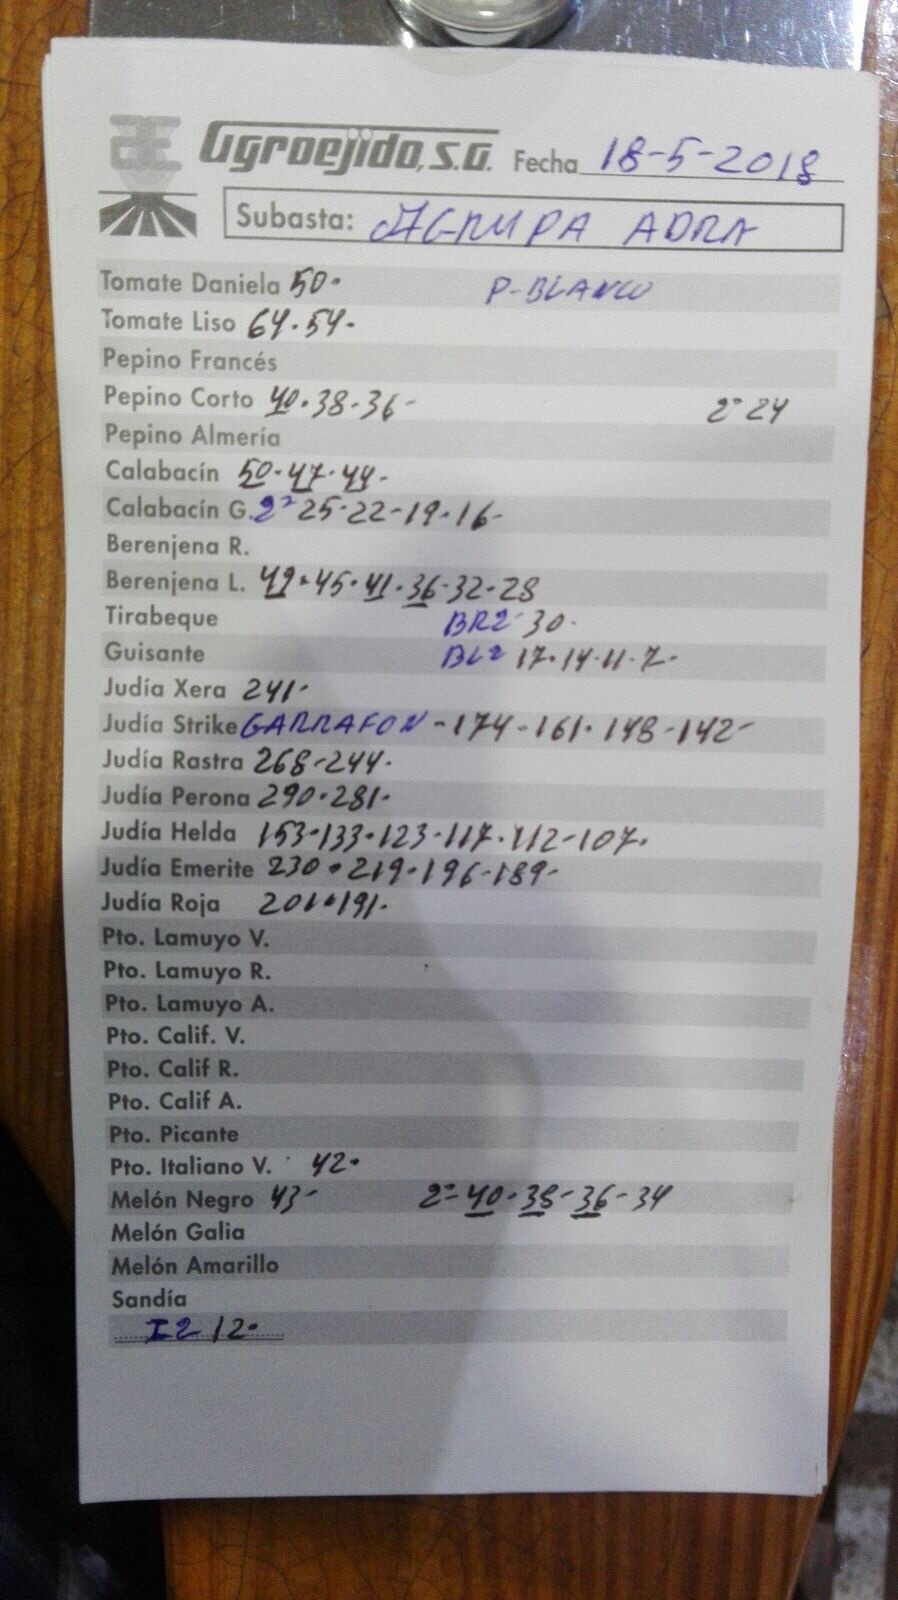 Agroejido, S.A. Fecha 18-5-2018
Subasta: AGRUPA ADRA
Tomate Daniela 50. P-BLANCO
Tomate Liso 64.54.
Pepino Francés
Pepino Corto 40.38-36- 2ª 24
Pepino Almería
Calabacín 50.47.44.
Calabacín G. 2ª 25-22-19-16-
Berenjena R.
Berenjena L. 49.45.41.36.32.28
Tirabeque BR2 30.
Guisante BL2 17.14.11.7.
Judía Xera 241.
Judía Strike GARRAFON -174-161.148-142-
Judía Rastra 268-244.
Judía Perona 290.281.
Judía Helda 153-133.123-117.112-107.
Judía Emerite 230.219.196-189-
Judía Roja 201.191.
Pto. Lamuyo V.
Pto. Lamuyo R.
Pto. Lamuyo A.
Pto. Calif. V.
Pto. Calif R.
Pto. Calif A.
Pto. Picante
Pto. Italiano V. 42.
Melón Negro 43- 2ª 40.38-36-34
Melón Galia
Melón Amarillo
Sandía
I2 12.